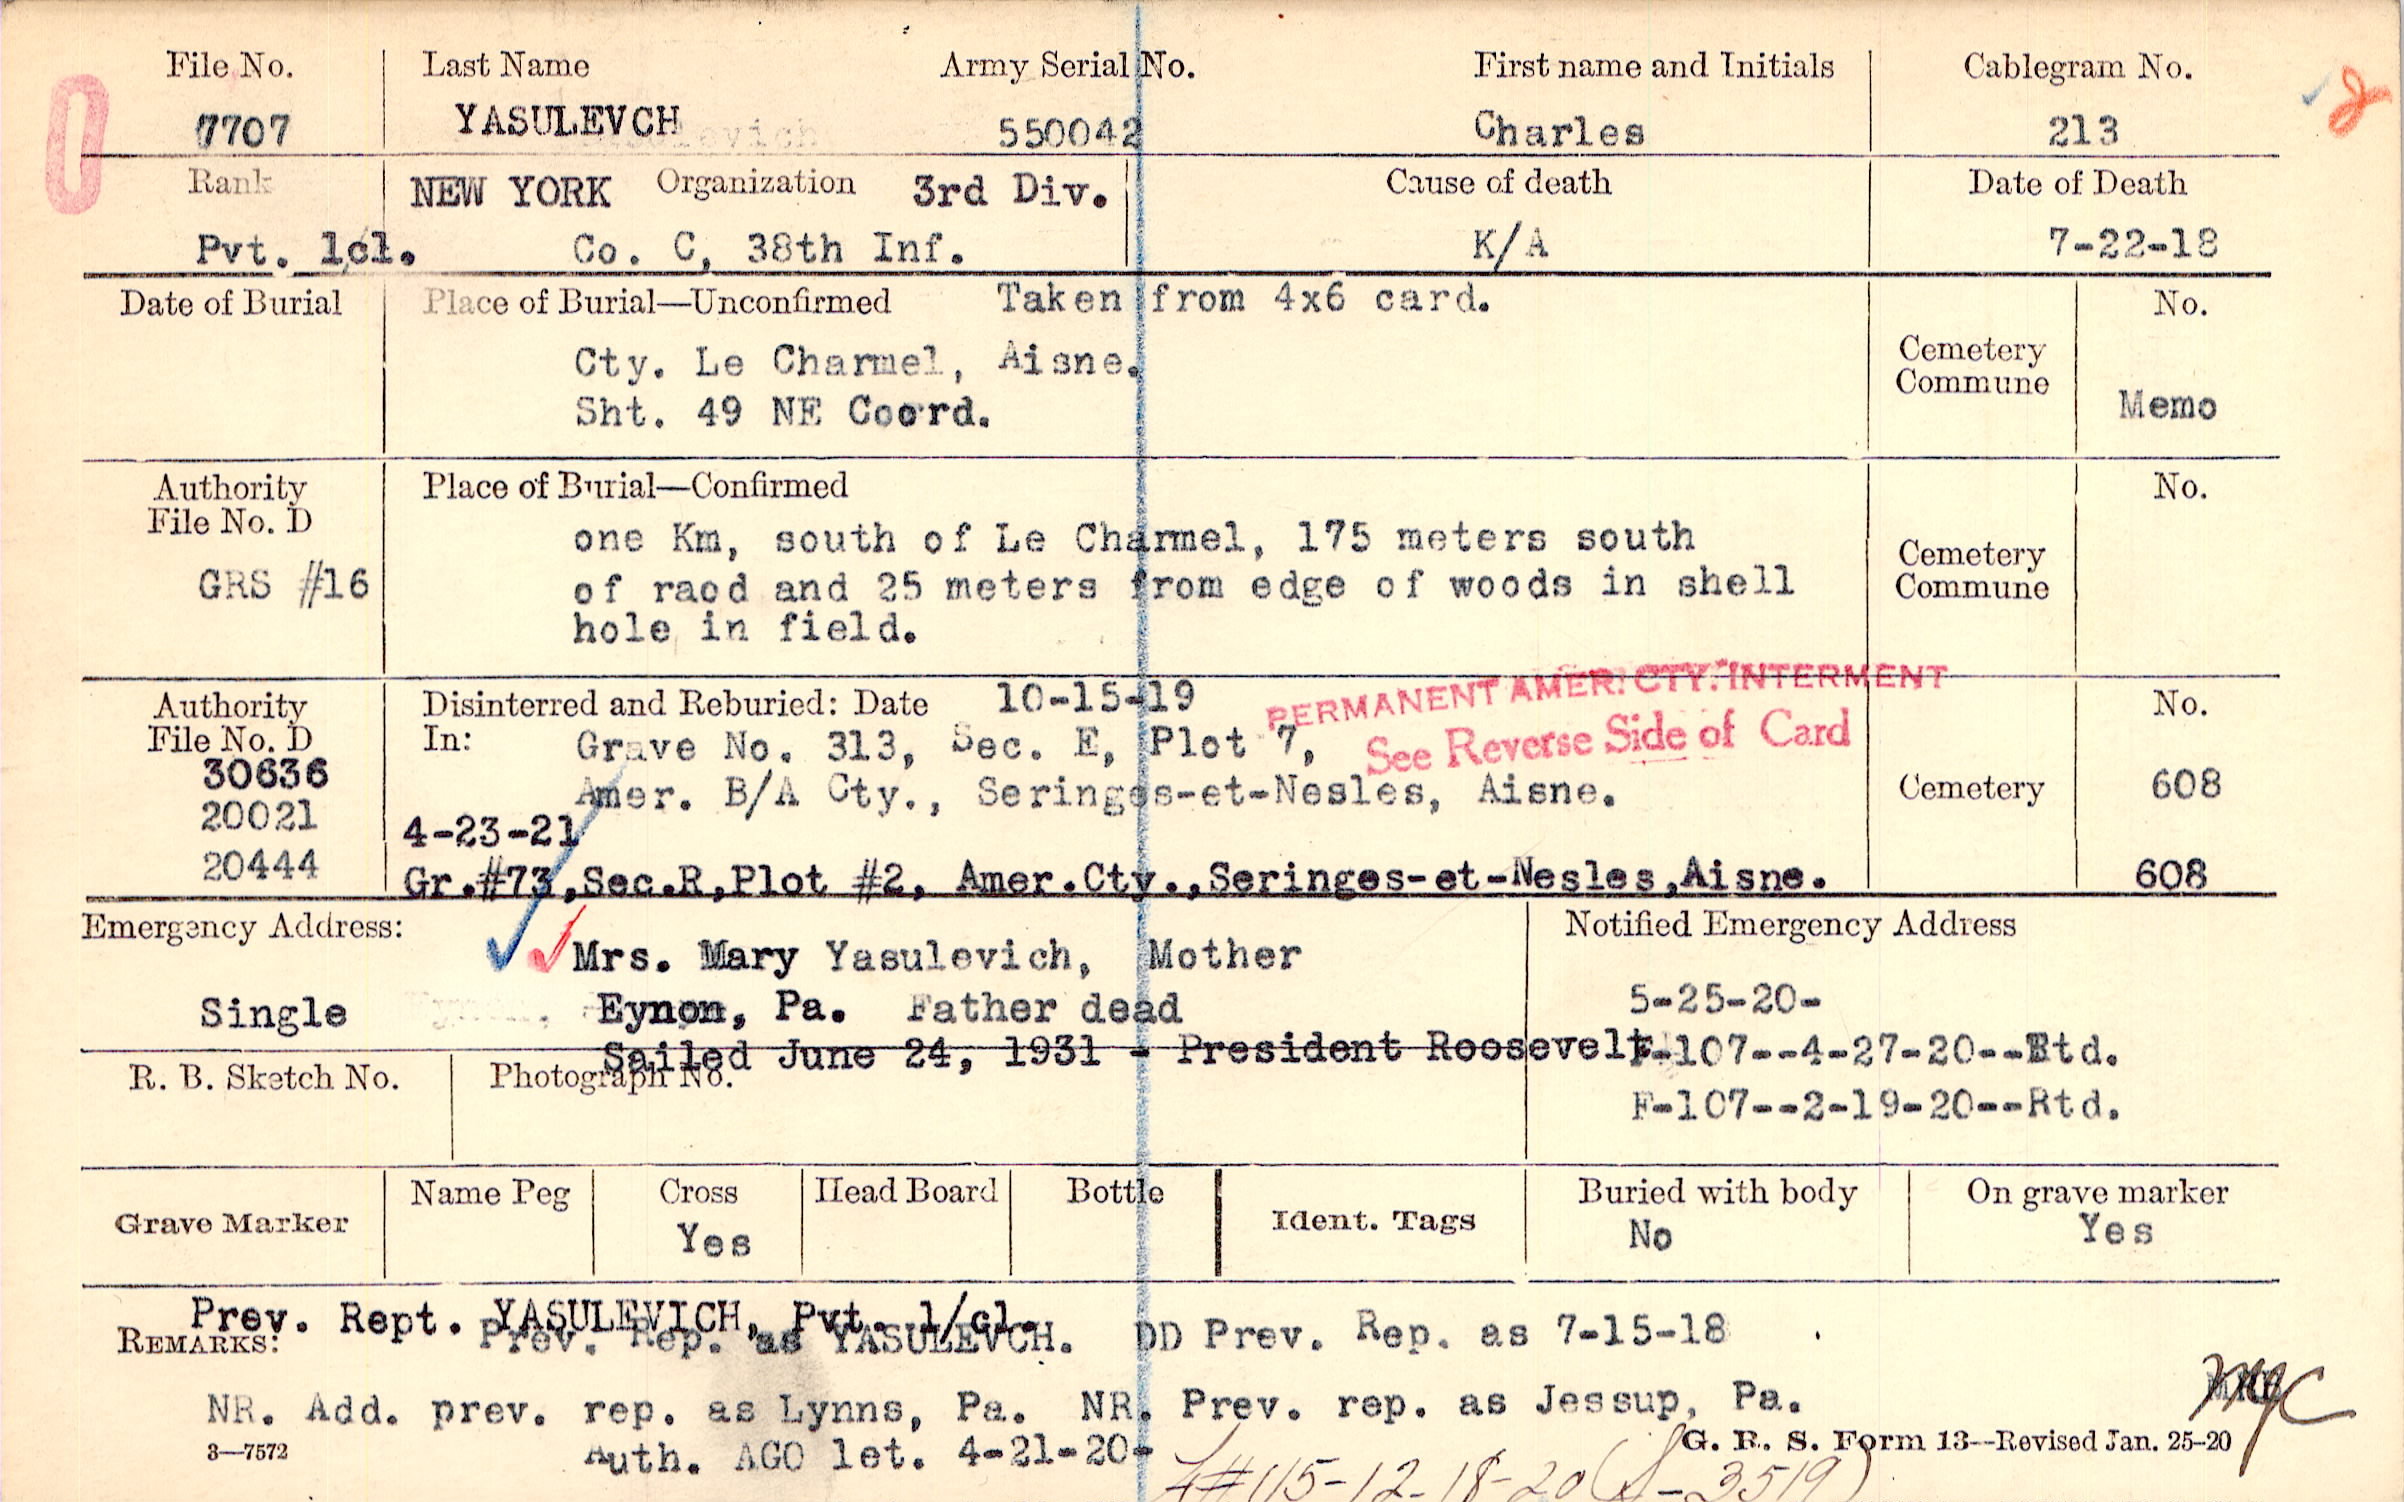 File No. Last Name Army Serial No. First name and Initials Cablegram No.
7707 YASULEVCH 550042 Charles 213
Rank NEW YORK Organization 3rd Div. Cause of death Date of Death
Pvt. 1cl. Co. C, 38th Inf. K/A 7-22-18
Date of Burial Place of Burial—Unconfirmed Taken from 4x6 card. No.
Cty. Le Charmel, Aisne. Cemetery
Commune
Sht. 49 NE Coord. Memo
Authority Place of Burial—Confirmed No.
File No. D
one Km, south of Le Charmel, 175 meters south Cemetery
GRS #16 of raod and 25 meters from edge of woods in shell Commune
hole in field.
PERMANENT AMER. CTY. INTERMENT
Authority Disinterred and Reburied: Date 10-15-19 No.
See Reverse Side of Card
File No. D In: Grave No. 313, Sec. E, Plot 7,
30636
Amer. B/A Cty., Seringes-et-Nesles, Aisne. Cemetery 608
20021
4-23-21
20444 Gr.#73,Sec.R,Plot #2, Amer.Cty.,Seringes-et-Nesles,Aisne. 608
Emergency Address: Notified Emergency Address
Mrs. Mary Yasulevich, Mother
Single Eynon, Pa. Father dead 5-25-20-
Sailed June 24, 1931 - President Roosevelt F-107--4-27-20--Rtd.
R. B. Sketch No. Photograph No.
F-107--2-19-20--Rtd.
Grave Marker Name Peg Cross Head Board Bottle Ident. Tags Buried with body On grave marker
Yes No Yes
Prev. Rept. YASULEVICH, Pvt. 1/cl.
REMARKS: Prev. Rep. as YASULEVCH. DD Prev. Rep. as 7-15-18
NR. Add. prev. rep. as Lynns, Pa. NR. Prev. rep. as Jessup, Pa.
3—7572 Auth. AGO let. 4-21-20- G. R. S. Form 13—Revised Jan. 25-20